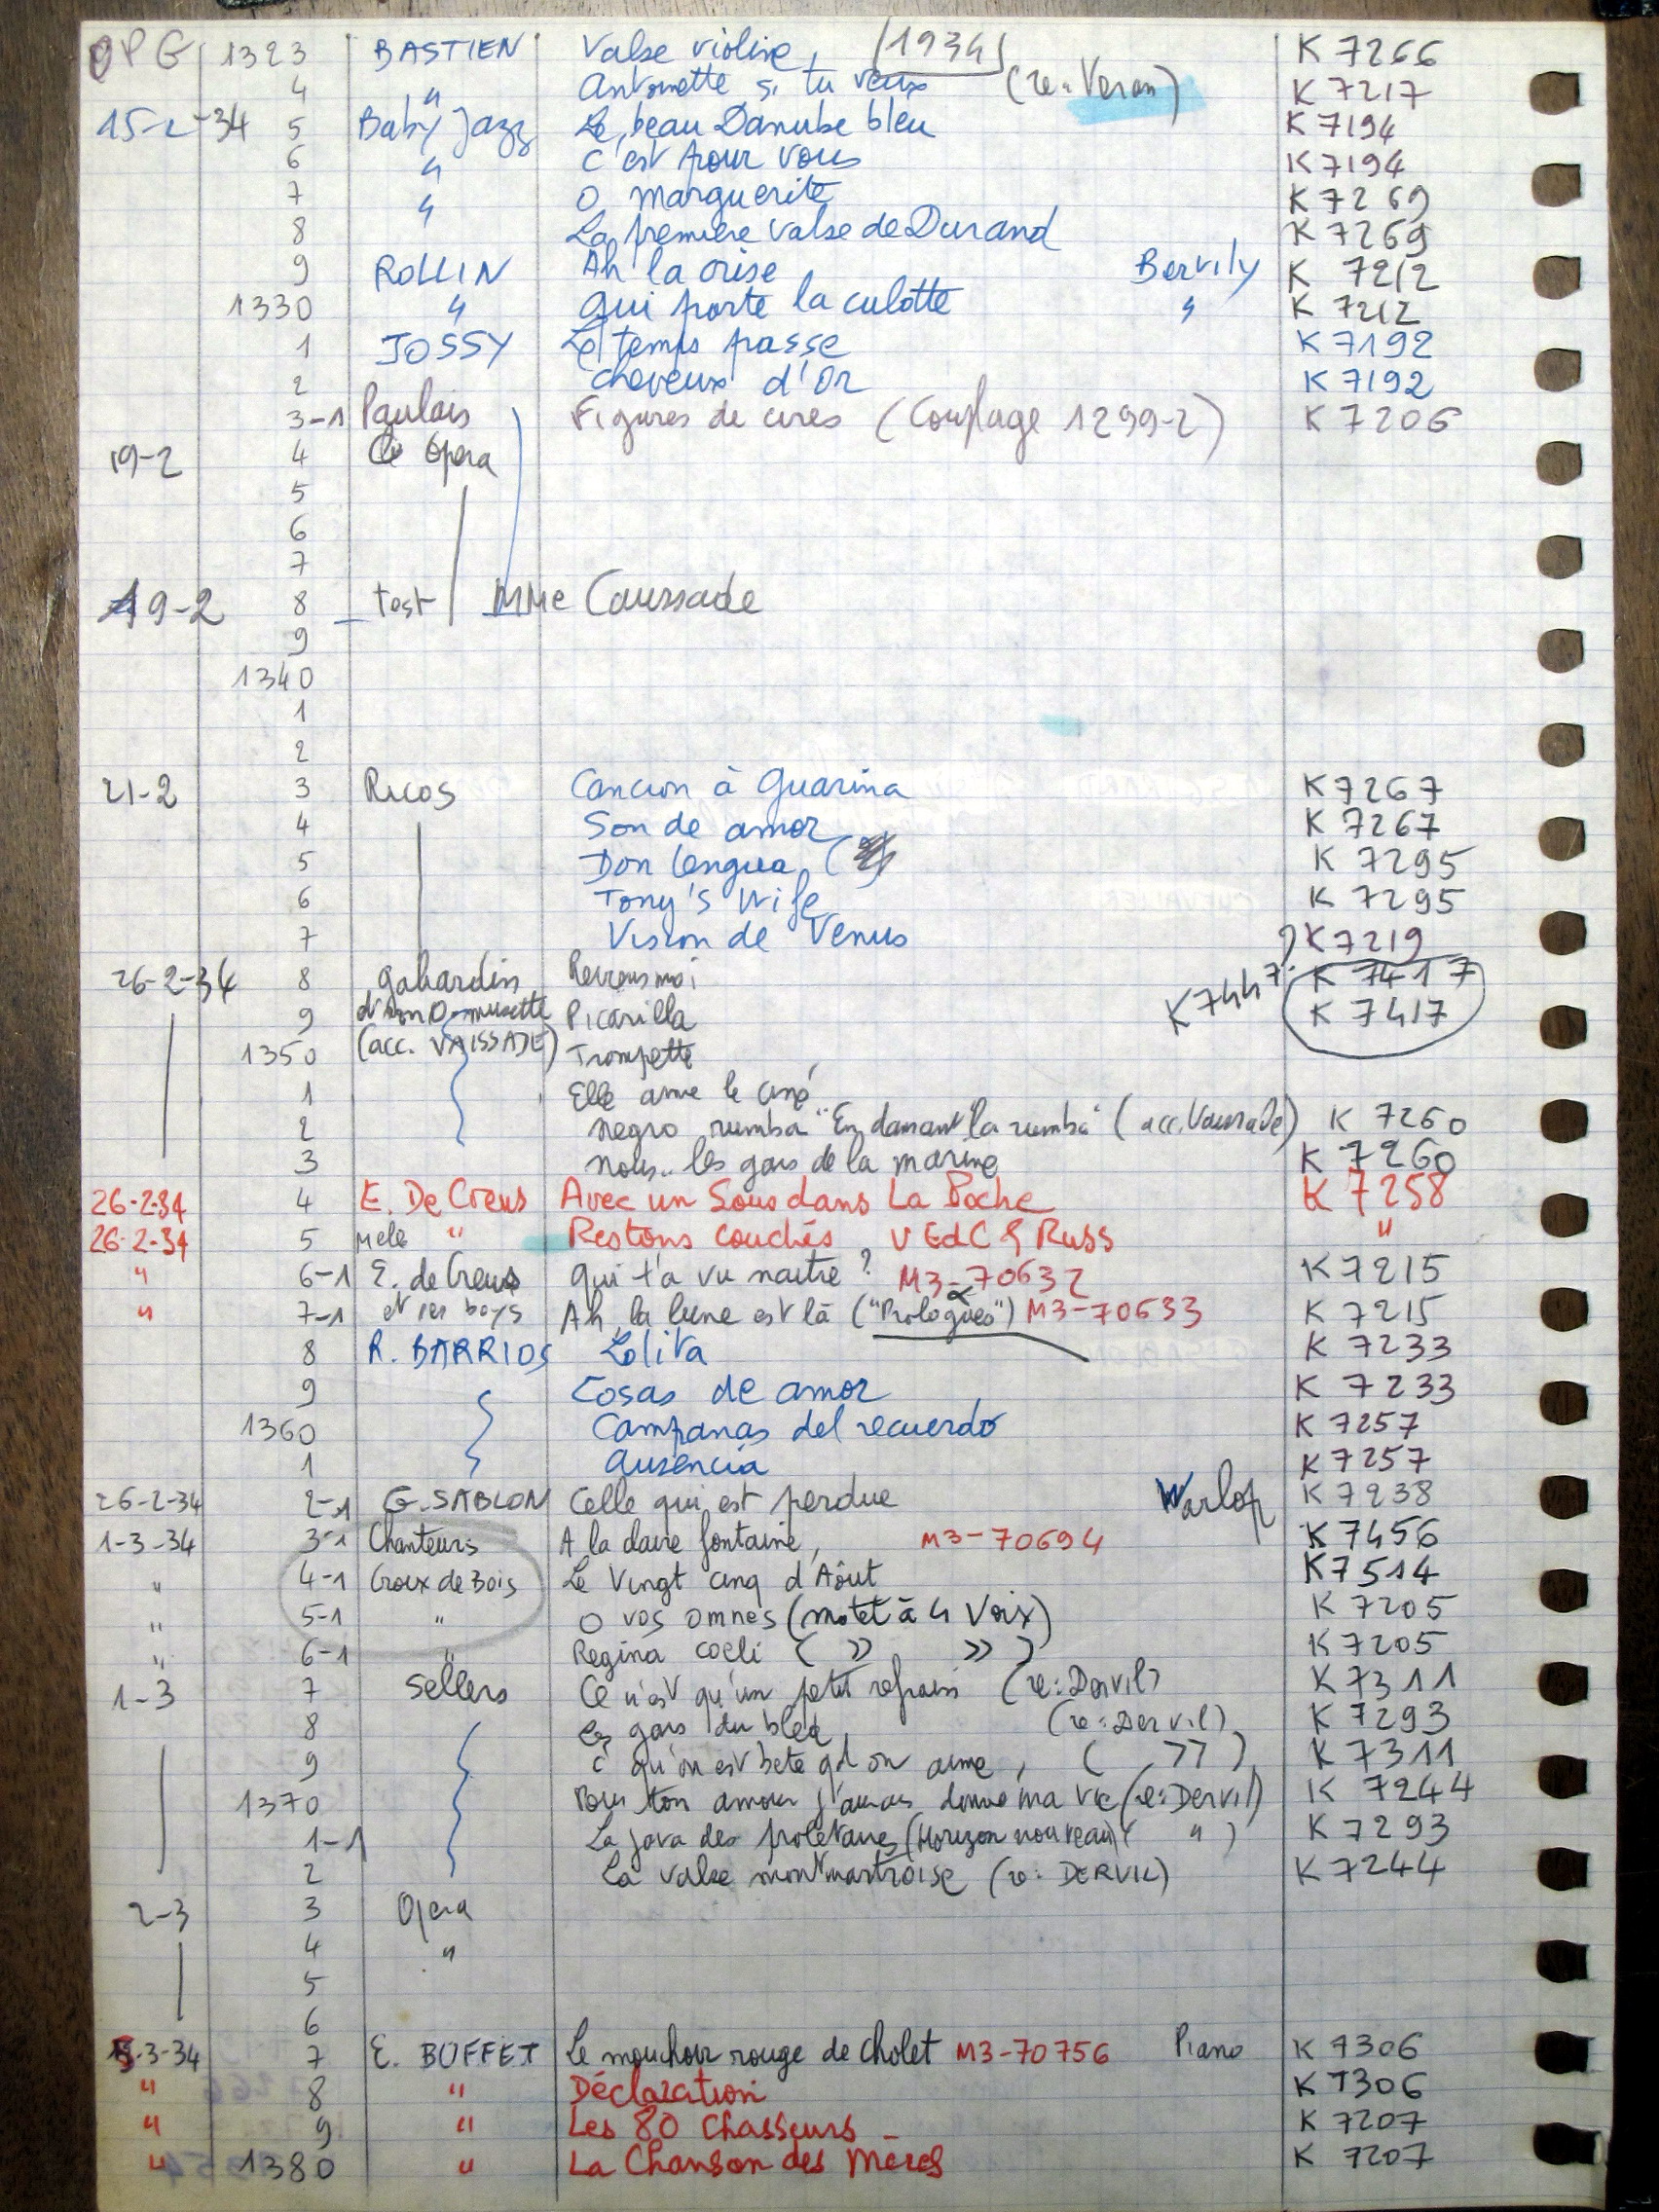 OPG 1323 BASTIEN Valse violine, (1934) K 7266
4 " Antoinette si tu veux (re: Veran) K 7217
15-2-34 5 Baby Jazz Le beau Danube bleu K 7194
6 " C'est pour vous K 7194
7 " O marguerite K 7269
8 La premiere valse de Durand K 7269
9 ROLLIN Ah! la crise Bervily K 7212
1330 " qui porte la culotte " K 7212
1 JOSSY Le temps passe K 7192
2 cheveux d'Or K 7192
3-1 Paulais Figures de cires (Couplage 1299-2) K 7206
19-2 4 Opera
5
6
7
19-2 8 test MMe Caussade
9
1340
1
2
21-2 3 Ricos Cancion à Guarina K 7267
4 Son de amor K 7267
5 Don Lengua K 7295
6 Tony's Wife K 7295
7 Vision de Venus ? K 7219
26-2-34 8 gabardin Reviens moi K7447? K 7417
9 et son O. musette Picarilla K 7417
1350 (acc. VAISSADE) Trompette
1 Elle aime le ciné
2 negro rumba "En dansant la rumba" (acc. Vaissade) K 7260
3 nous.. les gars de la marine K 7260
26-2-34 4 E. De Creus Avec un Sous dans La Poche K 7258
26-2-34 5 Mele " Restons couchés V EdC & Russ "
" 6-1 E. de Creus qui t'a vu naitre ? M3-70632 K 7215
" 7-1 et ses boys Ah, la lune est là ("Prologues") M3-70633 K 7215
8 R. BARRIOS Lolita K 7233
9 Cosas de amor K 7233
1360 Campanas del recuerdo K 7257
1 Ausencia K 7257
26-2-34 2-1 G. SABLON Celle qui est perdue Warlop K 7238
1-3-34 3-1 Chanteurs A la claire fontaine, M3-70694 K 7456
" 4-1 Croix de Bois Le Vingt cinq d'Aôut K 7514
" 5-1 " O vos omnes (motet à 4 Voix) K 7205
" 6-1 " Regina coeli ( » » ) K 7205
1-3 7 Sellers Ce n'est qu'un petit refrain (re: Dervil) K 7311
8 Les gars du bled, (re: Dervil) K 7293
9 C'qu'on est bete qd on aime, ( » ) K 7311
1370 Pour ton amour j'aurais donné ma vie (re: Dervil) K 7244
1-1 La java des proletaires (Horizon nouveau) ( " ) K 7293
2 La valse montmartroise (re: DERVIL) K 7244
2-3 3 Opera
4 "
5
6
5-3-34 7 E. BUFFET Le mouchoir rouge de Cholet M3-70756 Piano K 7306
" 8 " Déclaration K 7306
" 9 " Les 80 Chasseurs K 7207
" 1380 " La Chanson des Meres K 7207